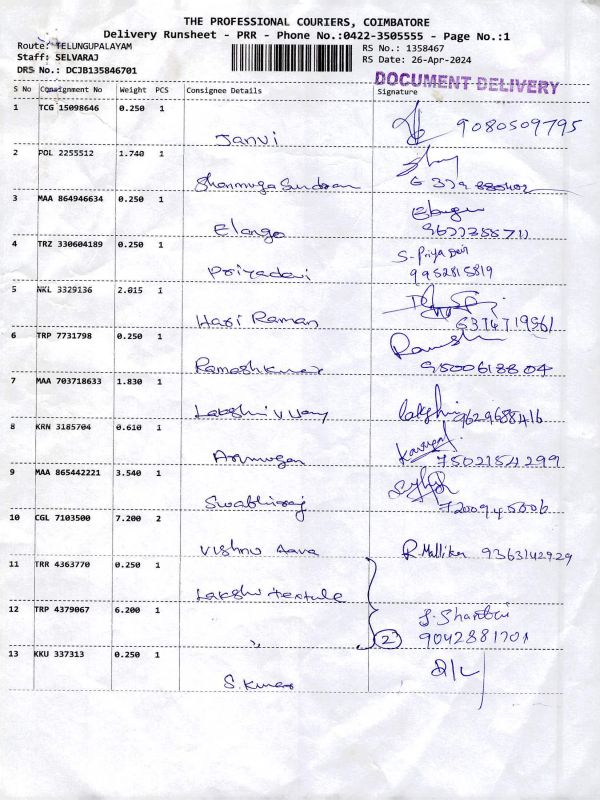 THE PROFESSIONAL COURIERS, COIMBATORE
Delivery Runsheet - PRR - Phone No.:0422-3505555 - Page No.:1
Route: TELUNGUPALAYAM
RS No.: 1358467
Staff: SELVARAJ
RS Date: 26-Apr-2024
DRS No.: DCJB135846701
DOCUMENT DELIVERY
S No Consignment No Weight PCS Consignee Details Signature
1 TCG 15098646 0.250 1
Janvi 9080509795
2 POL 2255512 1.740 1
Shanmuga Sundaram
3 MAA 864946634 0.250 1
Elango
4 TRZ 330604189 0.250 1 S-Priya Devi
Priyadevi 9952815819
5 NKL 3329136 2.015 1
Hari Raman
6 TRP 7731798 0.250 1
Rameshkumar 9500618804
7 MAA 703718633 1.830 1
Lakshmi 9629688416
8 KRN 3185704 0.610 1
Arumugam 7502154299
9 MAA 865442221 3.540 1
10 CGL 7103500 7.200 2
Vishnu R. Mallika 9363142929
11 TRR 4363770 0.250 1
12 TRP 4379067 6.200 1
" 2 9042881701
13 KKU 337313 0.250 1
S. Kumar